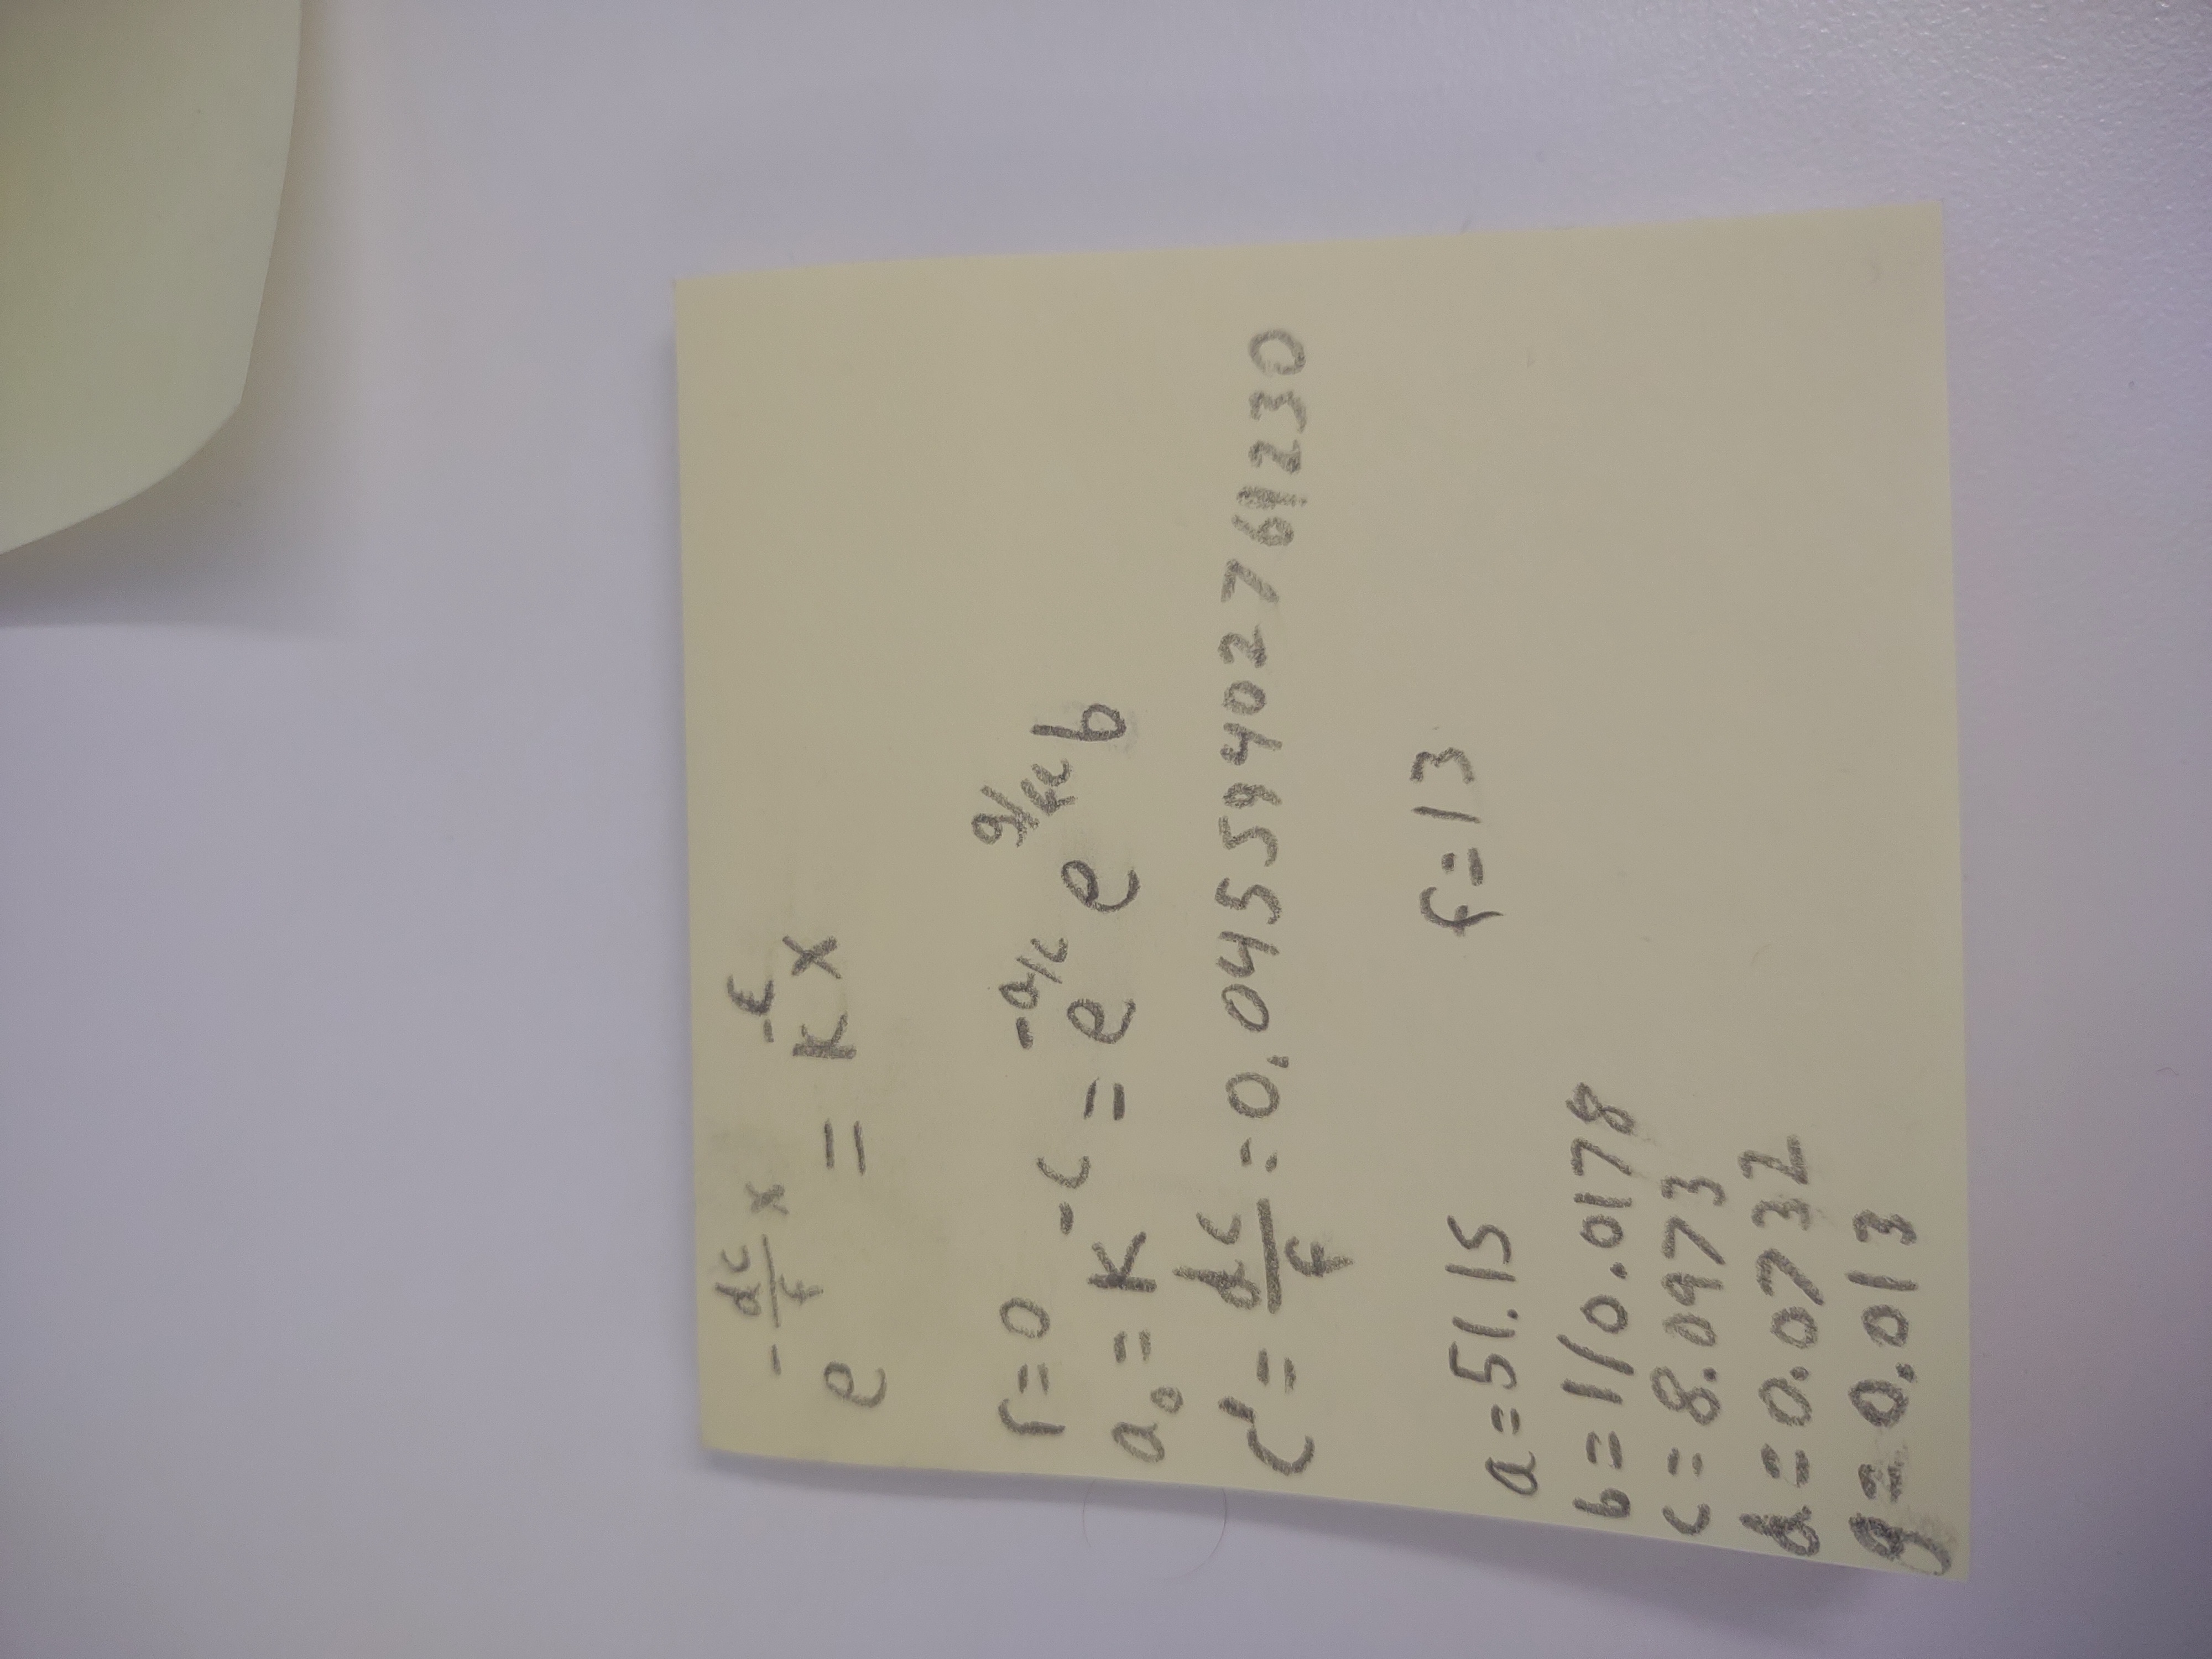 e^{-\frac{dc}{f}x} = k^{-c}x
r=0
a_0 = k^{-c} = e^{-a/c} e^{g/fc} b
c' = \frac{dc}{f} = 0.04559402769230
a=51.15 f=13
b=1/0.0178
c=8.0973
d=0.0732
g=0.013